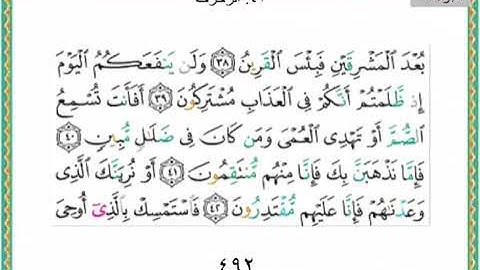 بُعْدَ ٱلْمَشْرِقَيْنِ فَبِئْسَ ٱلْقَرِينُ ٣٨ وَلَن يَنفَعَكُمُ ٱلْيَوْمَ
إِذ ظَّلَمْتُمْ أَنَّكُمْ فِى ٱلْعَذَابِ مُشْتَرِكُونَ ٣٩ أَفَأَنتَ تُسْمِعُ
ٱلصُّمَّ أَوْ تَهْدِى ٱلْعُمْىَ وَمَن كَانَ فِى ضَلَٰلٍ مُّبِينٍ ٤٠
فَإِمَّا نَذْهَبَنَّ بِكَ فَإِنَّا مِنْهُم مُّنتَقِمُونَ ٤١ أَوْ نُرِيَنَّكَ ٱلَّذِى
وَعَدْنَٰهُمْ فَإِنَّا عَلَيْهِم مُّقْتَدِرُونَ ٤٢ فَٱسْتَمْسِكْ بِٱلَّذِىٓ أُوحِىَ
٤٩٢